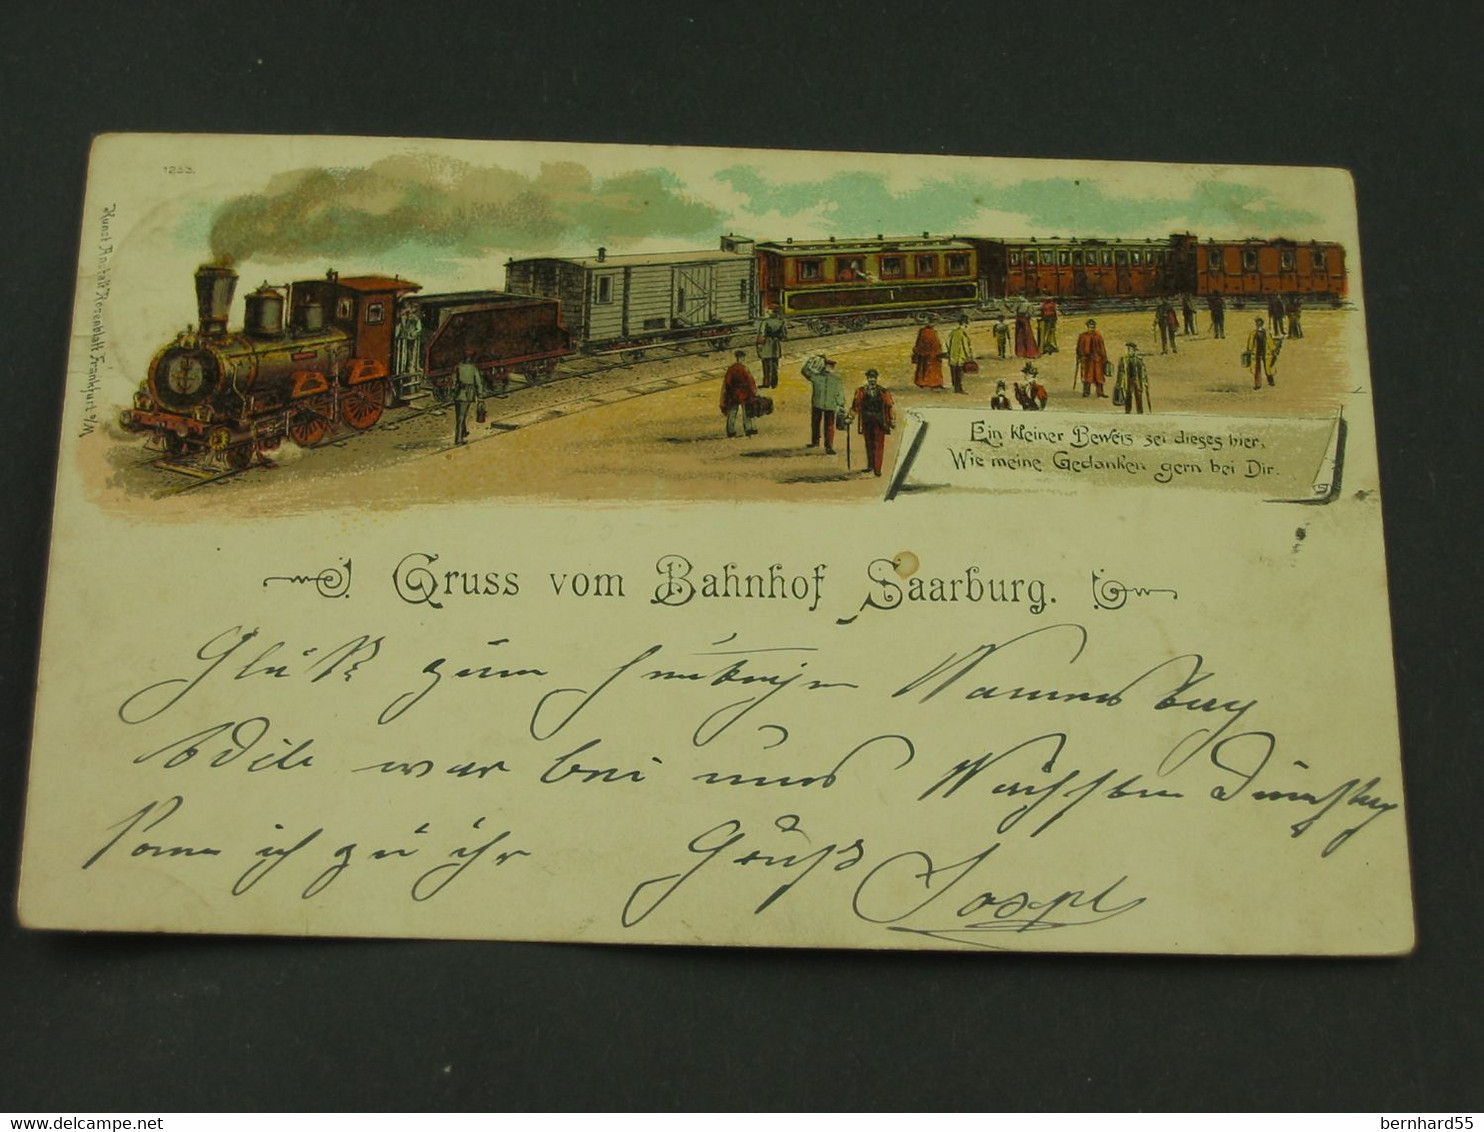 1253.
Kunst Anstalt Rosenblatt Frankfurt a/M
Ein kleiner Beweis sei dieses hier,
Wie meine Gedanken gern bei Dir.
Gruss vom Bahnhof Saarburg.
Glück zum heutigen Namenstag
Odile war bei uns Nächsten Dienstag
komm ich zu ihr Gruß Joseph
bernhard55